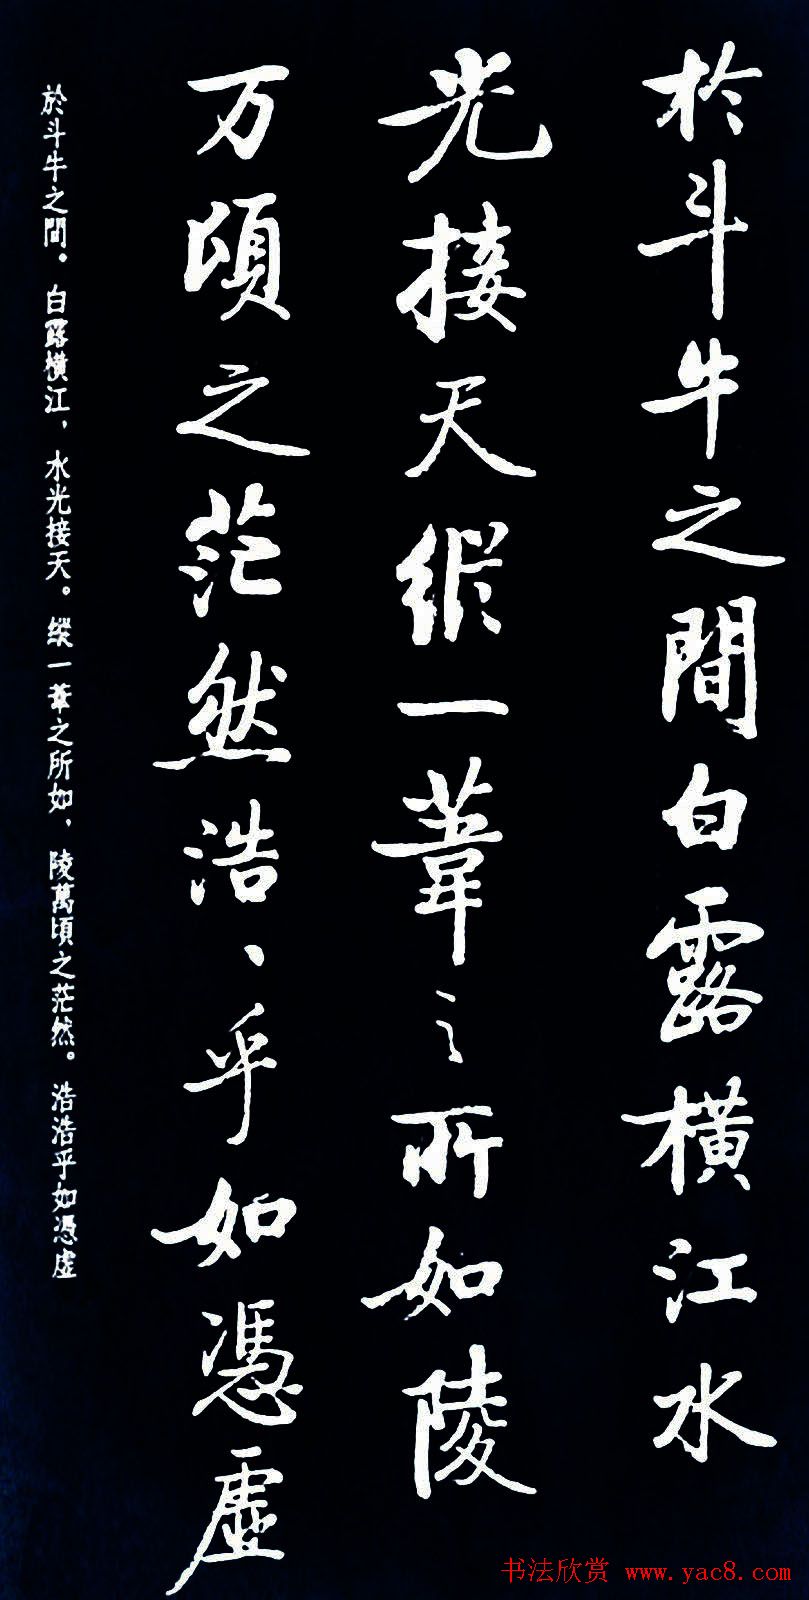 於斗牛之間白露横江水
光接天縱一葦之所如陵
万頃之茫然浩、乎如憑虚
於斗牛之間。白露横江，水光接天。縱一葦之所如，陵萬頃之茫然。浩浩乎如憑虚
书法欣赏 www.yac8.com